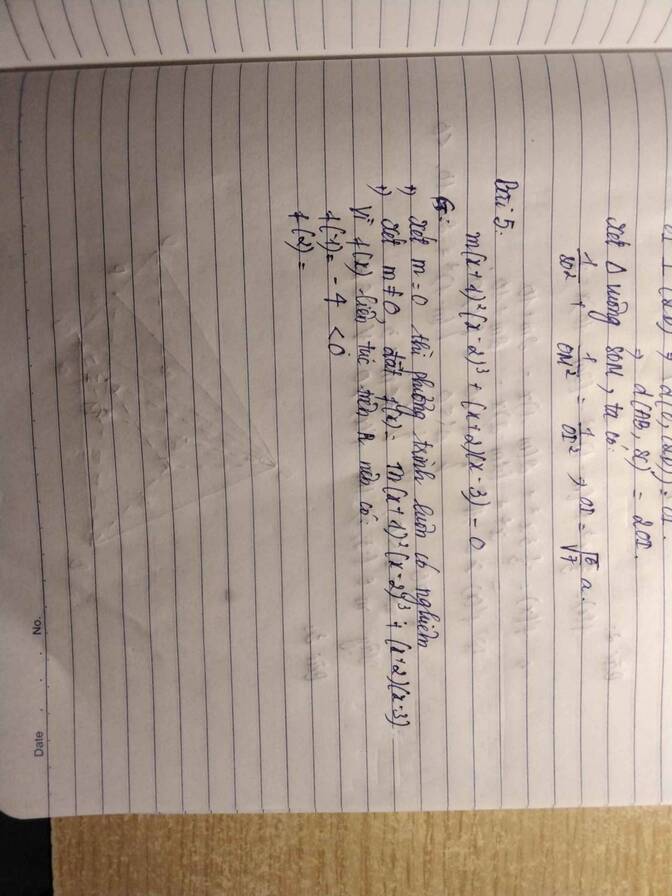 ⇒ d(AB, SC) = 2OI.
Xét Δ vuông SOM, ta có:
1/SO² + 1/OM² = 1/OI² ⇒ OI = √6/7 a.
Bài 5:
m(x+1)²(x-2)³ + (x+2)(x-3) = 0
G:
+) Xét m = 0 thì phương trình luôn có nghiệm
+) Xét m ≠ 0, đặt f(x) = m(x+1)²(x-2)³ + (x+2)(x-3)
Vì f(x) liên tục trên R nên có:
f(-1) = -4 < 0
f(2) =
Date No.